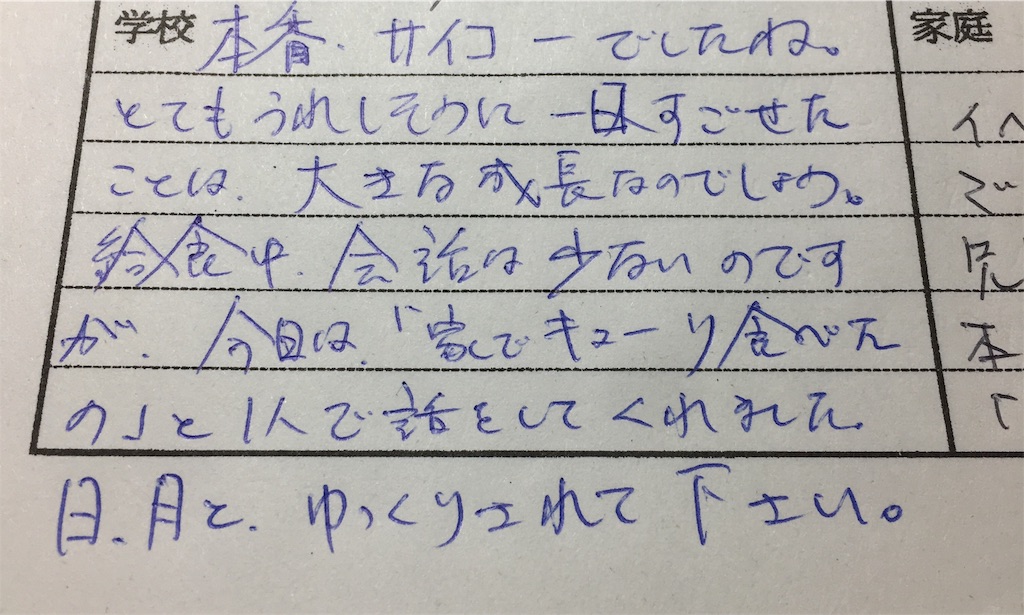 学校 本番、サイコーでしたね。 家庭
とてもうれしそうに一日すごせた
ことは、大きな成長なのでしょう。 で
給食中、会話は少ないのです
が、今日は、「家でキューリ食べた 本
の」と1人で話をしてくれました。 「
日、月と、ゆっくりされて下さい。